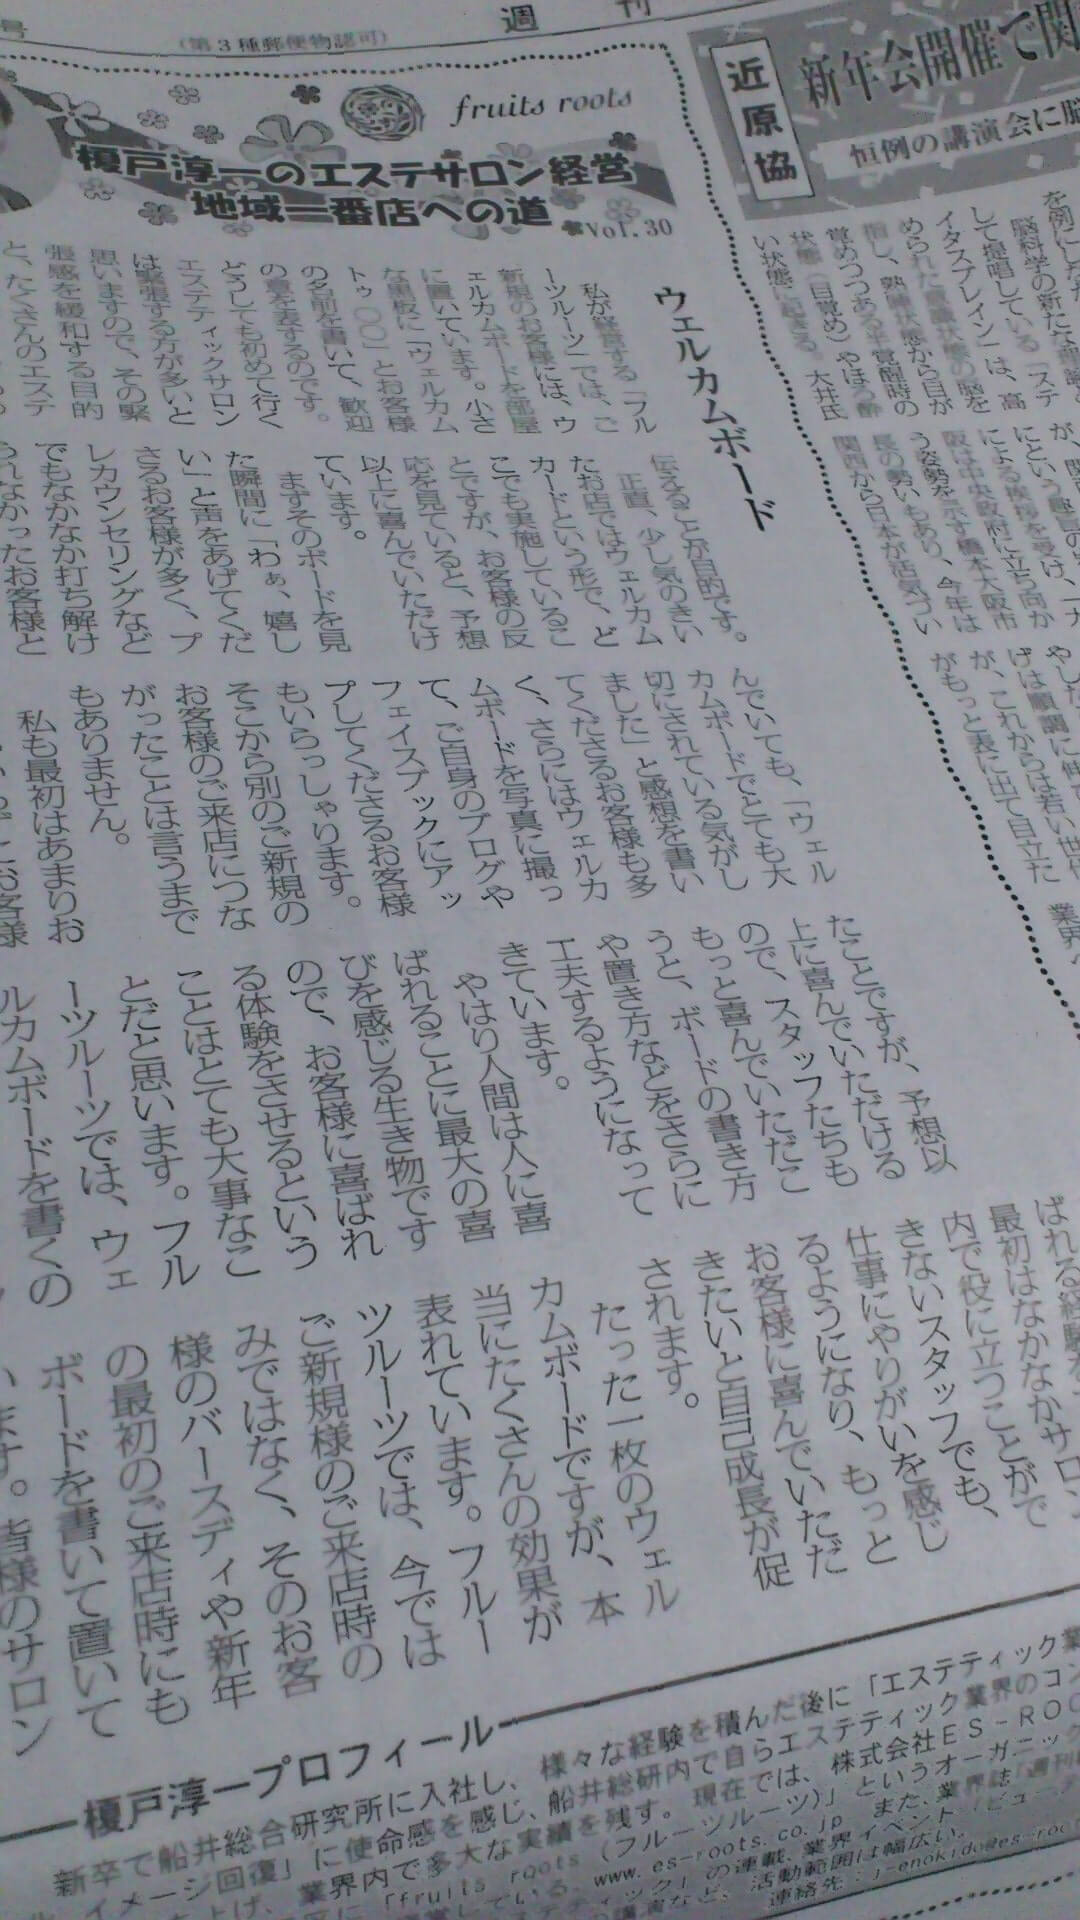 号
(第3種郵便物認可)
週刊
fruits roots
榎戸淳一のエステサロン経営
地域一番店への道
Vol.30
ウェルカムボード
私が経営する「フル
ーツルーツ」では、ご
新規のお客様には、ウ
ェルカムボードを部屋
に置いています。小さ
な黒板に「ウェルカム
トゥ 〇〇」とお客様
の名前を書いて、歓迎
の意を表するのです。
どうしても初めて行く
エステティックサロン
は緊張する方が多いと
思いますので、その緊
張感を緩和する目的
と、たくさんのエステ
伝えることが目的です。
正直、少し気のきい
たお店ではウェルカム
カードという形で、ど
こでも実施しているこ
とですが、お客様の反
応を見ていると、予想
以上に喜んでいただけ
ています。
まずそのボードを見
た瞬間に「わぁ、嬉し
い」と声をあげてくだ
さるお客様が多く、プ
レカウンセリングなど
でもなかなか打ち解け
られなかったお客様と
んでいても、「ウェル
カムボードでとても大
切にされている気がし
ました」と感想を書い
てくださるお客様も多
く、さらにはウェルカ
ムボードを写真に撮っ
て、ご自身のブログや
フェイスブックにアッ
プしてくださるお客様
もいらっしゃります。
そこから別のご新規の
お客様のご来店につな
がったことは言うまで
もありません。
私も最初はあまりお
たことですが、予想以
上に喜んでいただける
ので、スタッフたちも
もっと喜んでいただこ
うと、ボードの書き方
や置き方などをさらに
工夫するようになって
きています。
やはり人間は人に喜
ばれることに最大の喜
びを感じる生き物です
ので、お客様に喜ばれ
る体験をさせるという
ことはとても大事なこ
とだと思います。フル
ーツルーツでは、ウェ
ルカムボードを書くの
ばれる経験を
最初はなかなかサロン
内で役に立つことがで
きないスタッフでも、
仕事にやりがいを感じ
るようになり、もっと
お客様に喜んでいただ
きたいと自己成長が促
されます。
たった一枚のウェル
カムボードですが、本
当にたくさんの効果が
表れています。フルー
ツルーツでは、今では
ご新規様のご来店時の
みではなく、そのお客
様のバースディや新年
の最初のご来店時にも
ボードを書いて置いて
います。皆様のサロン
榎戸淳一プロフィール
新卒で船井総合研究所に入社し、様々な経験を積んだ後に「エステティック業
イメージ回復」に使命感を感じ、船井総研内で自らエステティック業界のコン
上げ、業界内で多大な実績を残す。現在では、株式会社ES-ROO
に「fruits roots(フルーツルーツ)」というオーガニック
している。www.es-roots.co.jp また、業界誌「週刊
ティック」の連載、業界イベント「ビューテ
講演など、活動範囲は幅広い。
連絡先:j-enokido@es-root
近原協
新年会開催で関
恒例の講演会に脳
を例にしなが
脳科学の新たな
して提唱している「ステ
イタスブレイン」は、高
められた意識状態の脳を
指し、熟睡状態から目が
覚めつつある半覚醒時の
状態(目覚め)やほろ酔
い状態に起きる。大井氏
が、関
にという趣旨の
による挨拶を受け、「ナ
阪は中央政府に立ち向か
う姿勢を示す橋本大阪市
長の勢いもあり、今年は
関西から日本が活気づい
やした
げは順調に伸
が、これからは若い世代
がもっと表に出て自立た
業界へ